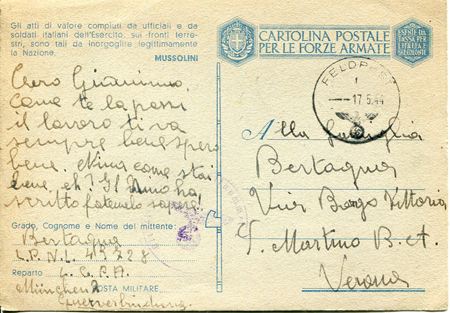 Gli atti di valore compiuti da ufficiali e da
soldati italiani dell'Esercito, sui fronti terre-
stri, sono tali da inorgoglire legittimamente
la Nazione.
MUSSOLINI
CARTOLINA POSTALE
PER LE FORZE ARMATE
FELDPOST
17.5.44
Caro Giovanni.
Come te la passi
il lavoro ti va
sempre bene spero
bene. Nina come stai
bene, eh?
scritto fatemelo sapere.
Grado, Cognome e Nome del mittente:
Bertagna
Reparto
POSTA MILITARE
Alla famiglia
Bertagna
Via Borgo Vittoria
S. Martino B. A.
Verona